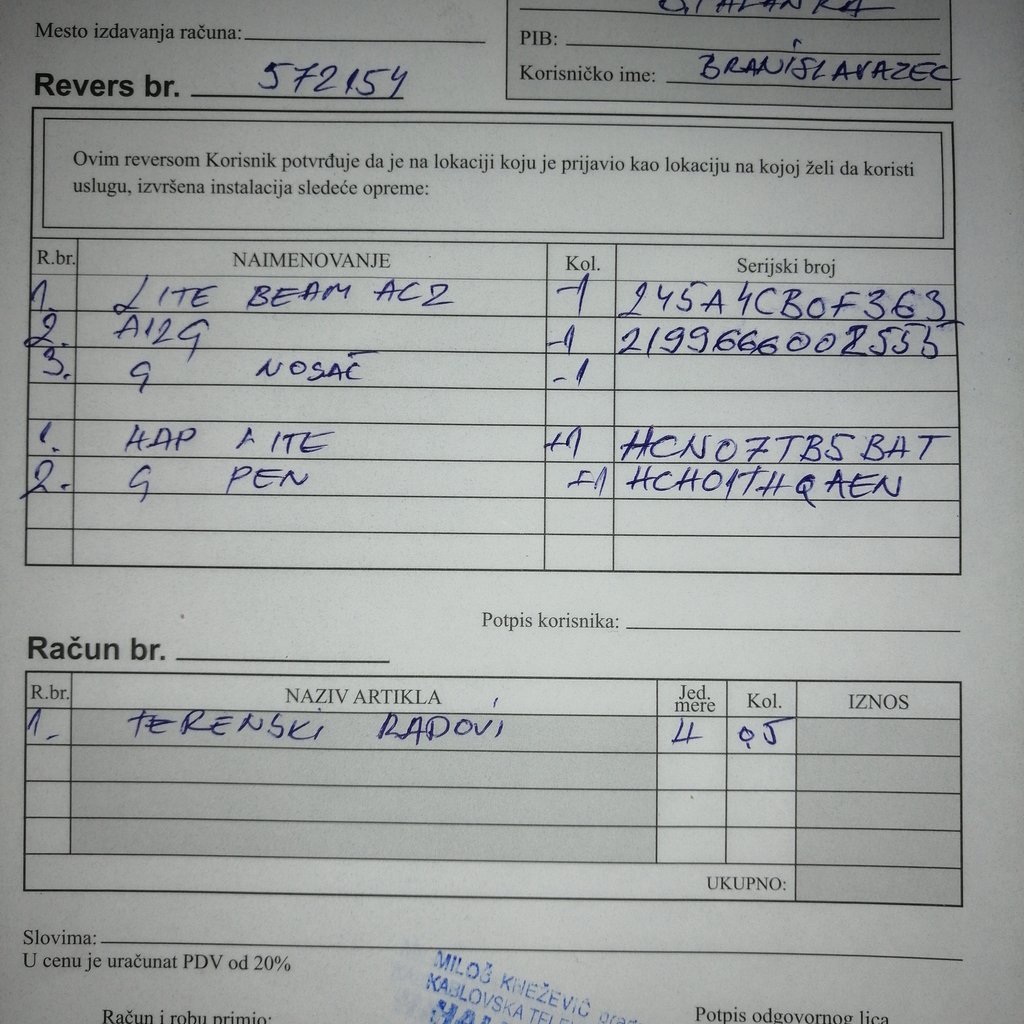 Mesto izdavanja računa:
PIB:
Korisničko ime: BRANISLAVAZEC
Revers br. 572154
Ovim reversom Korisnik potvrđuje da je na lokaciji koju je prijavio kao lokaciju na kojoj želi da koristi
uslugu, izvršena instalacija sledeće opreme:
R.br. NAIMENOVANJE Kol. Serijski broj
1. LITE BEAM AC2 -1 245A4CB0F363
2. A12G -1 2199666002555
3. G NOSAČ -1
1. HAP LITE +1 HCN07TB5BAT
2. G PEN +1 HCH01THQAEN
Potpis korisnika:
Račun br.
R.br. NAZIV ARTIKLA Jed. mere Kol. IZNOS
1. TERENSKI RADOVI H 05
UKUPNO:
Slovima:
U cenu je uračunat PDV od 20%
MILOŠ KNEŽEVIĆ
KABLOVSKA
Račun i robu primio:
Potpis odgovornog lica